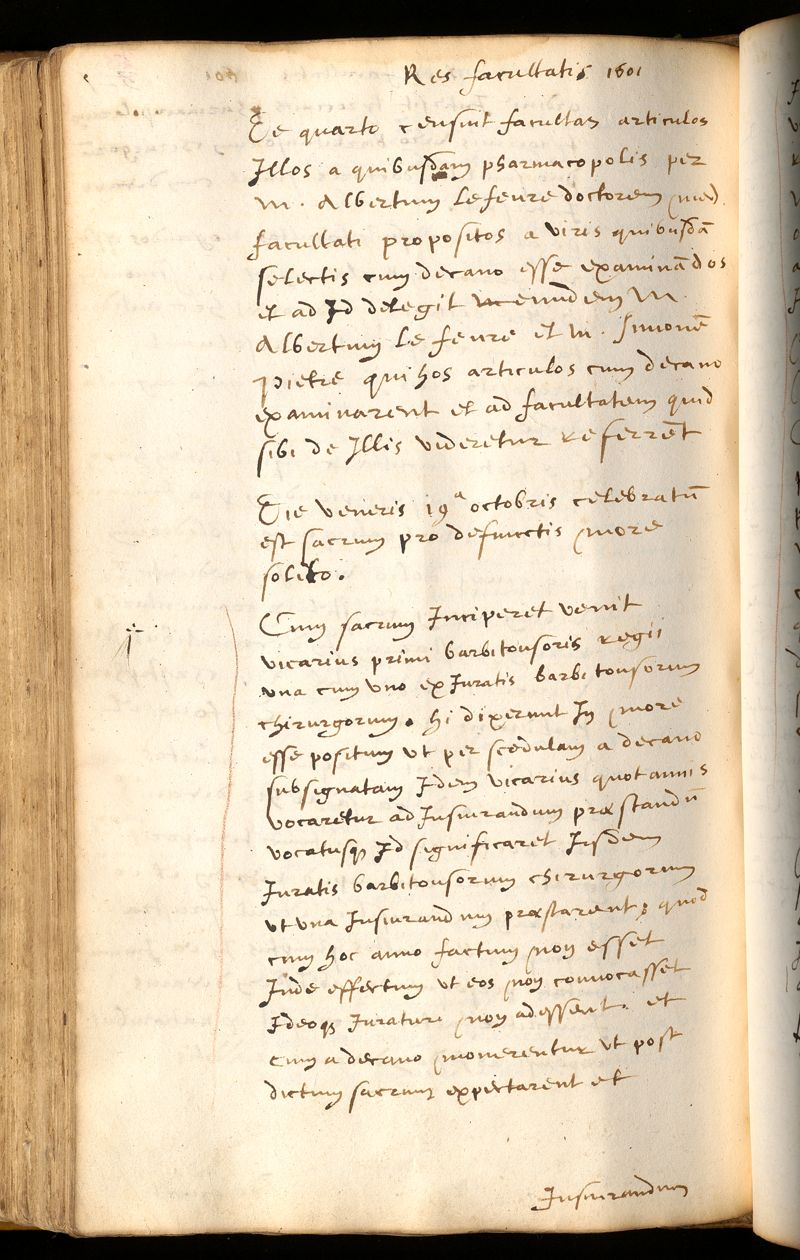 Res facultatis 1601
De quarto censuit facultas articulos
Illos a quibusdam pharmacopolis per
M. Albertum Lefeure doctorem med.
facultati propositos a viris quibusdā
selectis cum decano esse examinādos
et ad Id delegit eumdem M.
Albertum Lefeure et M. Simonē
Pietre qui hos articulos cum decano
examinarent et ad facultatem quid
sibi de Illis videretur referrēt
Die veneris 19ª octobris celebratū
est sacrum pro defunctis more
solito.
Cum sacrum Inciperet venit
vicarius primi barbitonsoris regii
una cum uno ex Iuratis barbitonsorum
chirurgorum. hi dixerunt In more
esse positum ut per scedulam a decano
subsignatam Idem vicarius quotannis
vocaretur ad Iusiurandum præstandū
vocatusq Id significaret Iisdem
Iuratis barbitonsorum chirurgorum
ut una Iusiurandum præstarent, quod
cum hoc anno factum non esset
Inde effectum ut eos non convocasset
Ideoq Iuraturi non adessent. et
cum a decano monerentur ut post
dictum sacrum expectarent et
Iusiurandum